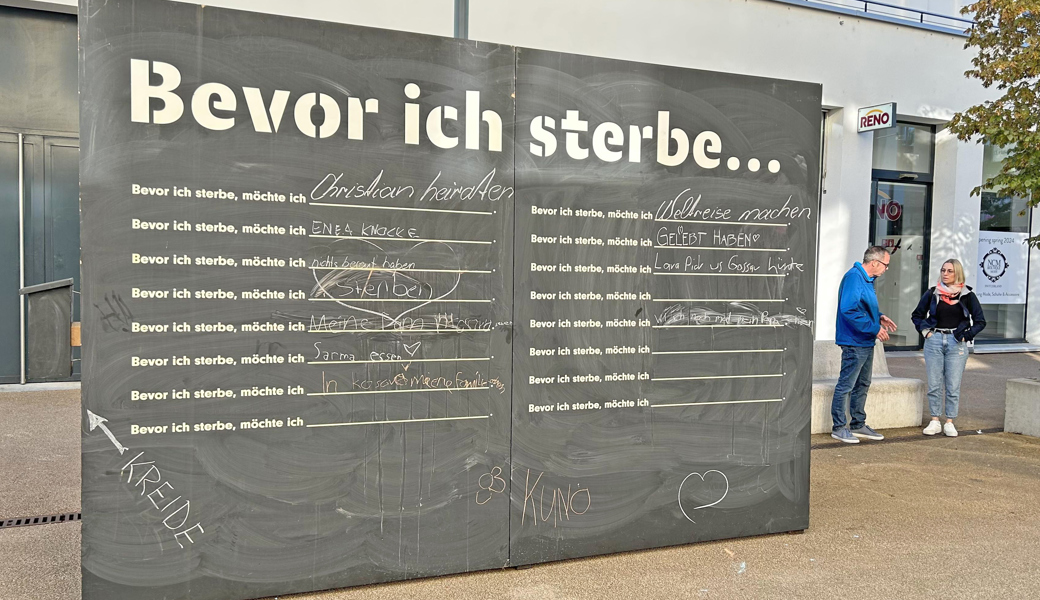 Bevor ich sterbe...
Bevor ich sterbe, möchte ich Christian heiraten
Bevor ich sterbe, möchte ich ENEA KNOCKE
Bevor ich sterbe, möchte ich nichts bereut haben
Bevor ich sterbe, möchte ich Sterben
Bevor ich sterbe, möchte ich Meine
Bevor ich sterbe, möchte ich Sarma essen
Bevor ich sterbe, möchte ich In kosovo meine familie
Bevor ich sterbe, möchte ich
Bevor ich sterbe, möchte ich Weltreise machen
Bevor ich sterbe, möchte ich GELEBT HABEN
Bevor ich sterbe, möchte ich us Gossau
Bevor ich sterbe, möchte ich
Bevor ich sterbe, möchte ich noch mal
Bevor ich sterbe, möchte ich
Bevor ich sterbe, möchte ich
Bevor ich sterbe, möchte ich
KREIDE
KUNO
RENO
spring 2024
NCM